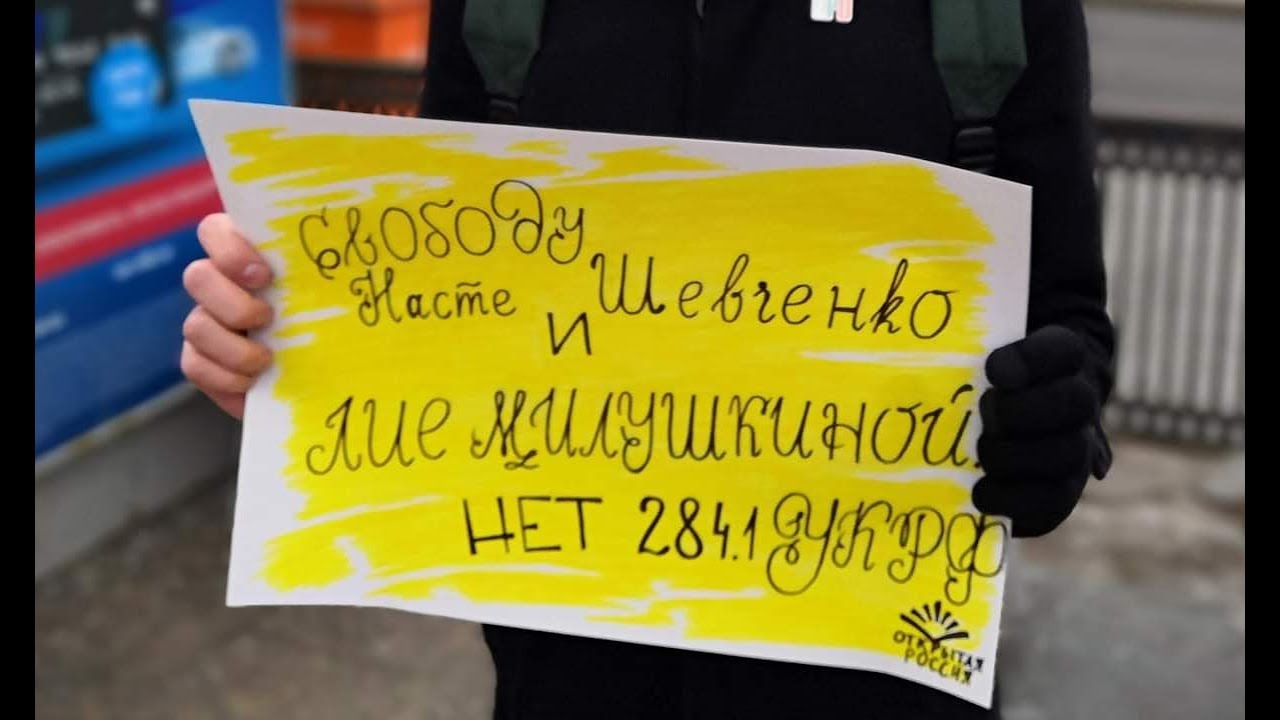 Свободу
Насте Шевченко
и
Лие Милушкиной.
НЕТ 284.1 УКРФ
ОТКРЫТАЯ
РОССИЯ